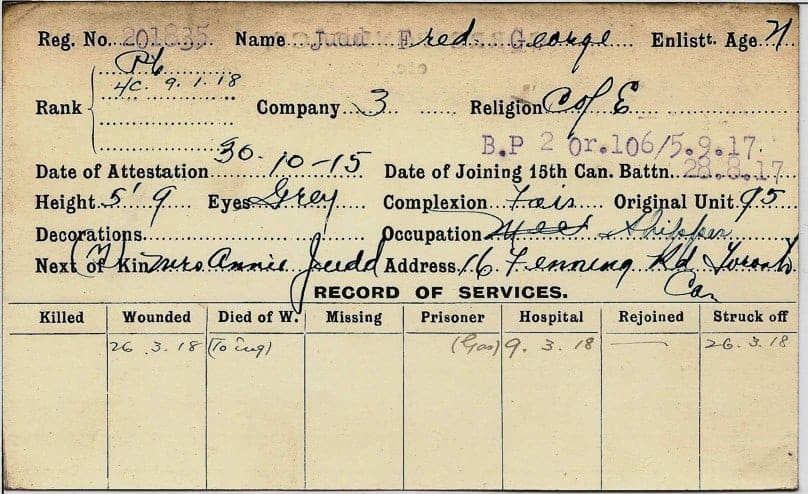 Reg. No. 201835 Name Judd Fred. George Enlistt. Age 21
Rank Pte
L/C. 9.1.18
Company 3 Religion C of E
B.P 2 Or.106/5.9.17.
Date of Attestation 30-10-15 Date of Joining 15th Can. Battn. 28.8.17
Height 5' 9 Eyes Grey Complexion Fair Original Unit 95
Decorations Occupation Shipper
Next of Kin Mrs Annie Judd Address 16 Fenning Rd Toronto
Can
RECORD OF SERVICES.
Killed Wounded Died of W. Missing Prisoner Hospital Rejoined Struck off
26.3.18 (To Eng) (Gas) 9.3.18 — 26.3.18